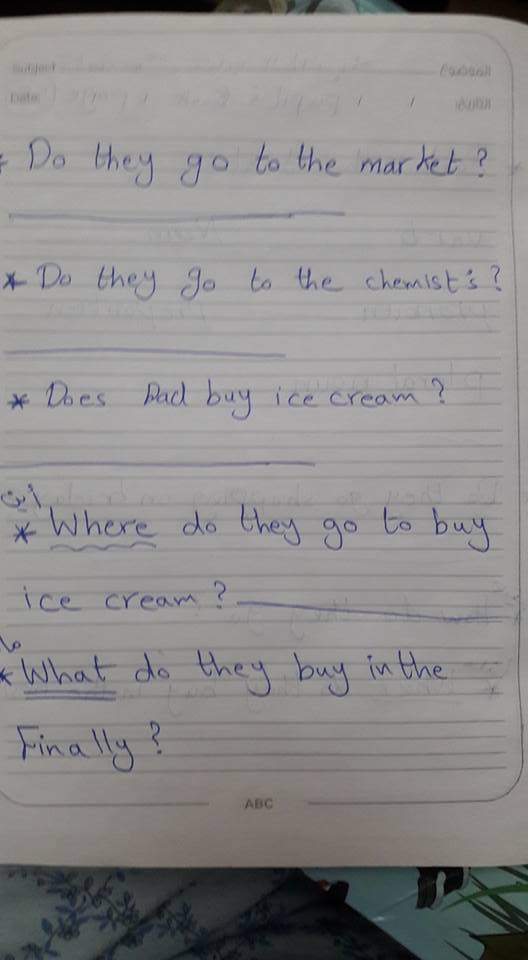 Subject
Date
* Do they go to the market?
* Do they go to the chemist's?
* Does Dad buy ice cream?
أين
* Where do they go to buy
ice cream?
ما
* What do they buy in the
Finally?
ABC